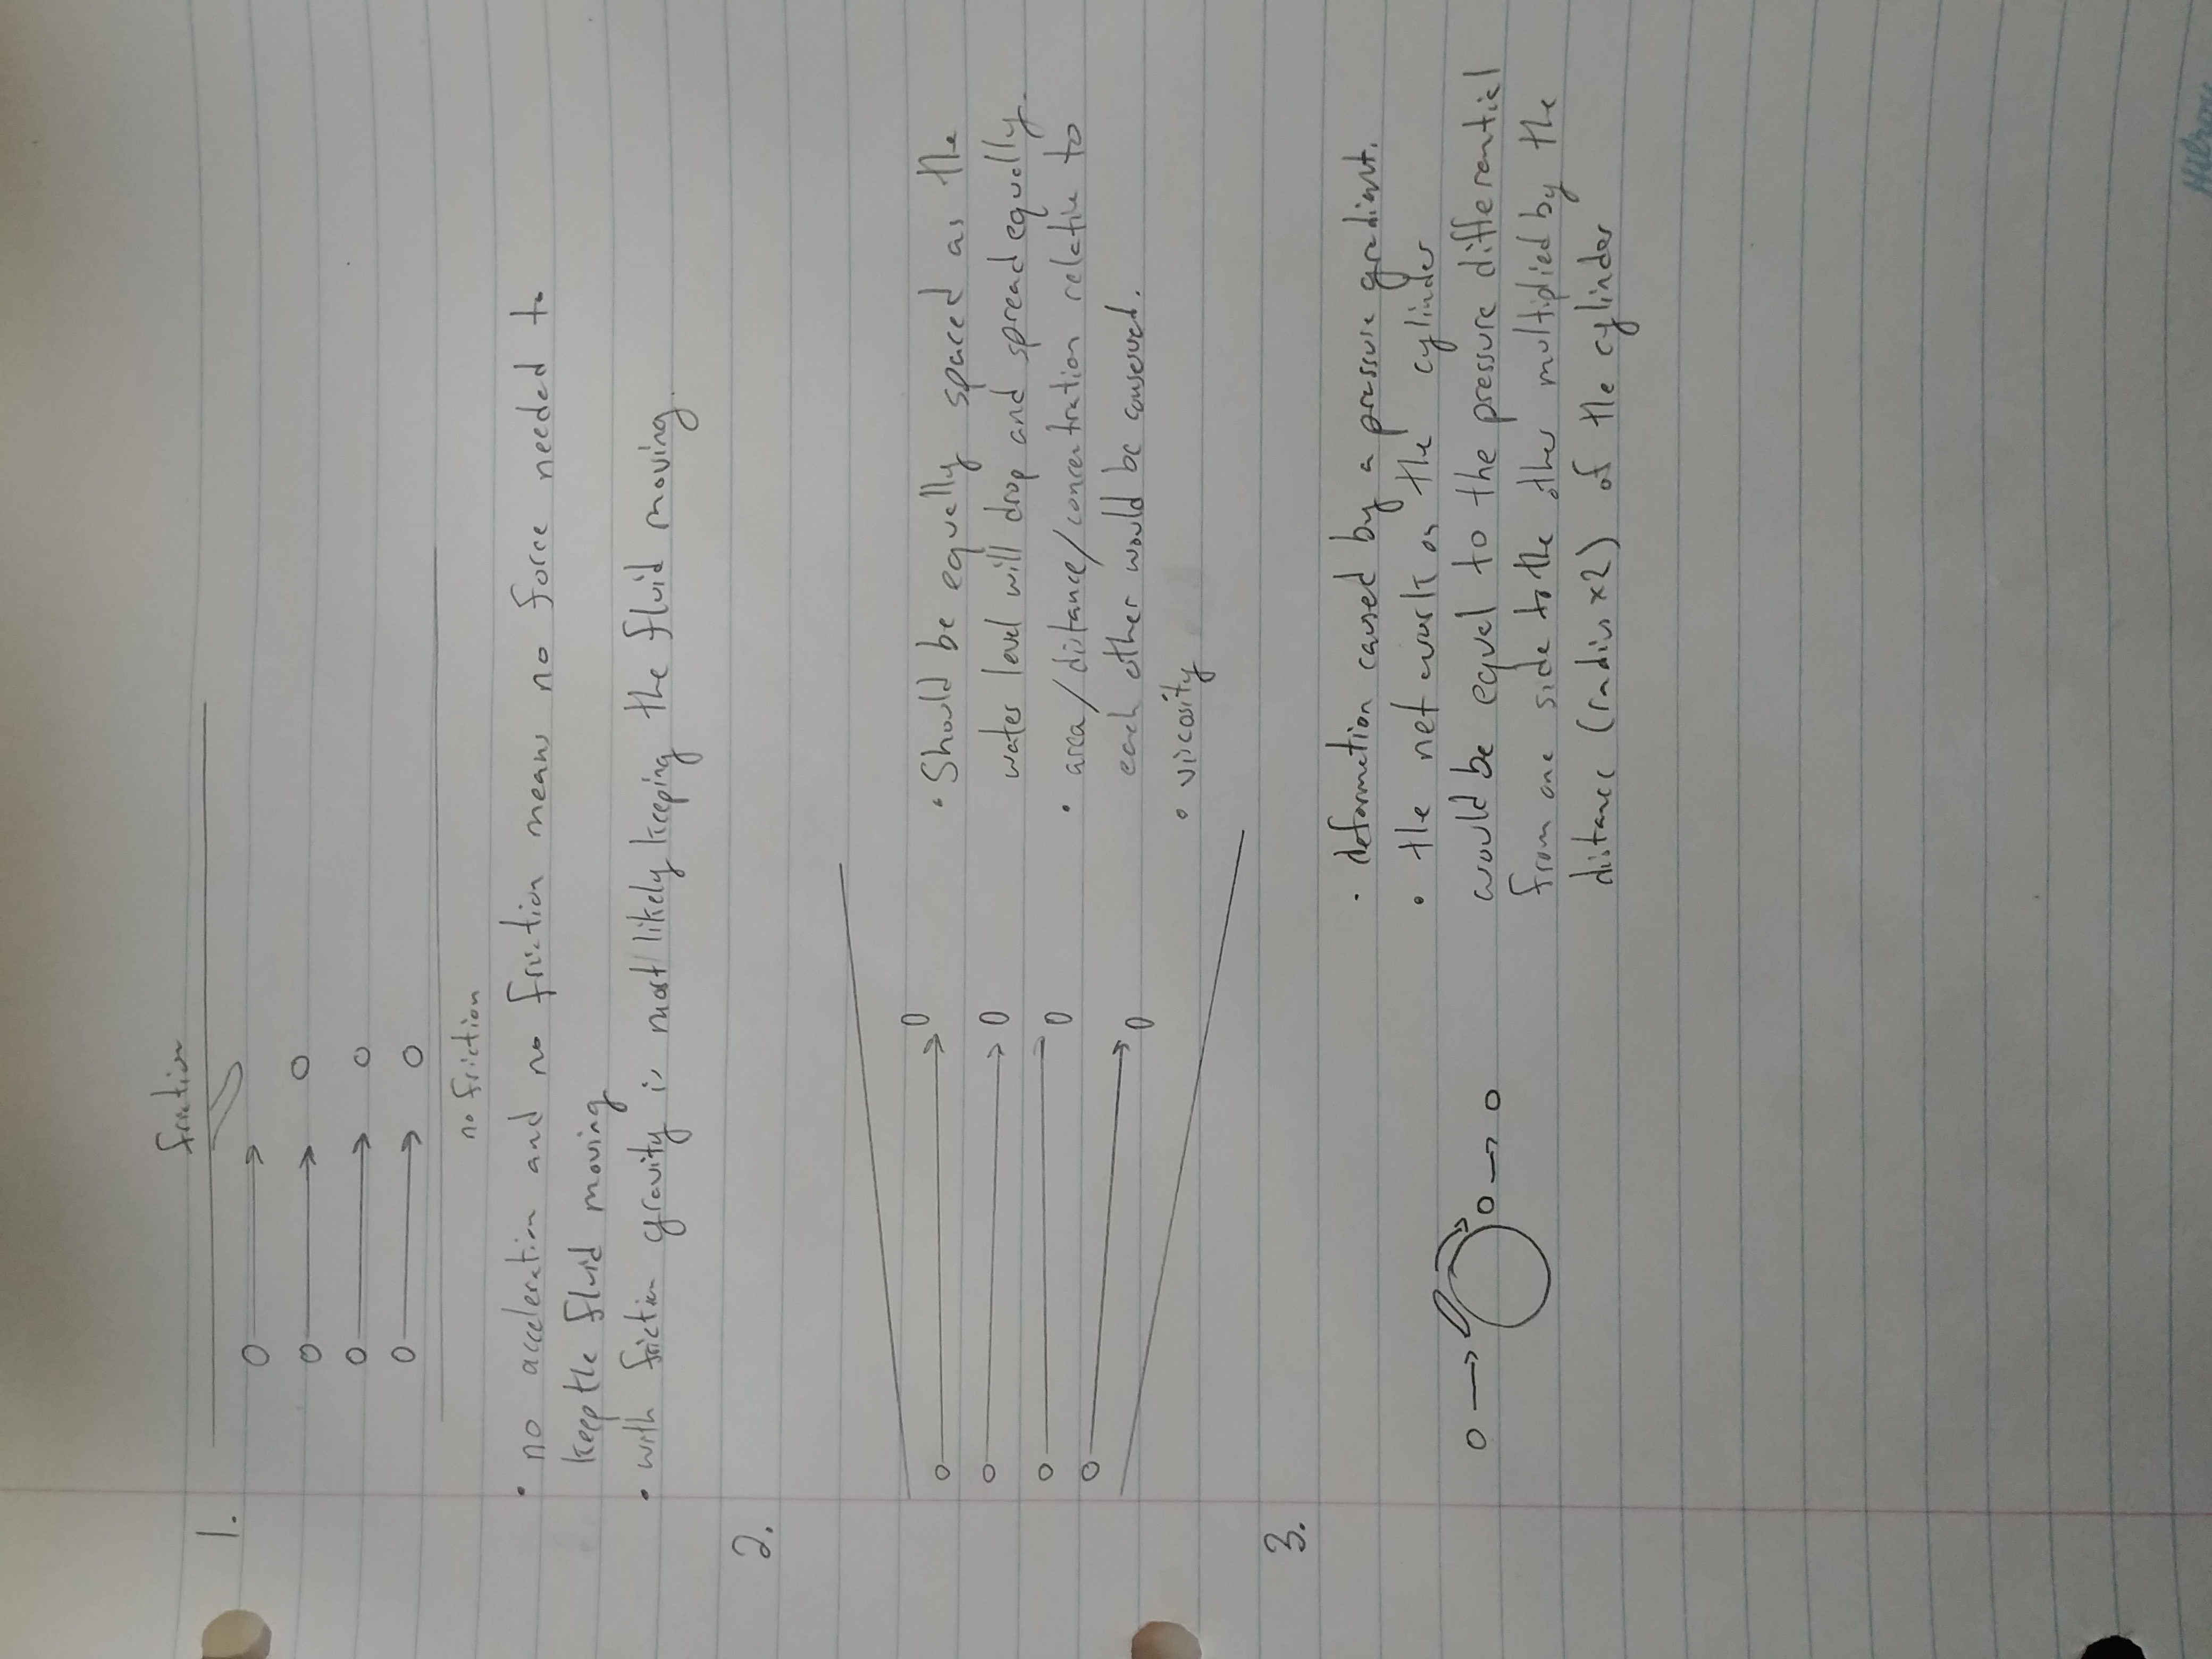 friction
1.
no friction
• no acceleration and no friction means no force needed to
keep the fluid moving
• with friction gravity is most likely keeping the fluid moving.
2.
• Should be equally spaced as the
water level will drop and spread equally.
• area/distance/concentration relative to
each other would be conserved.
• viscosity
3.
• deformation caused by a pressure gradient.
• the net work on the cylinder
would be equal to the pressure differential
from one side to the other multiplied by the
distance (radius x2) of the cylinder
Hilroy